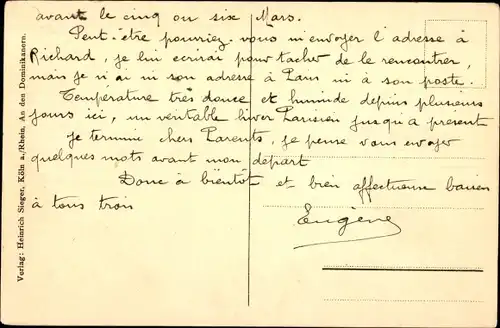 avant le cinq ou six Mars.
Peut-être pourriez-vous m'envoyer l'adresse à
Richard, je lui ecrirai pour tacher de le rencontrer,
mais je n'ai ni son adresse à Paris ni à son poste.
Température très douce et humide depuis plusieurs
jours ici, un véritable hiver Parisien jusqu'a present
Je termine chers Parents, je pense vous envoyer
quelques mots avant mon départ
Donc à bientôt et bien affectueux baisers
à tous trois
Eugène
Verlag: Heinrich Sieger, Köln a./Rhein, An den Dominikanern.